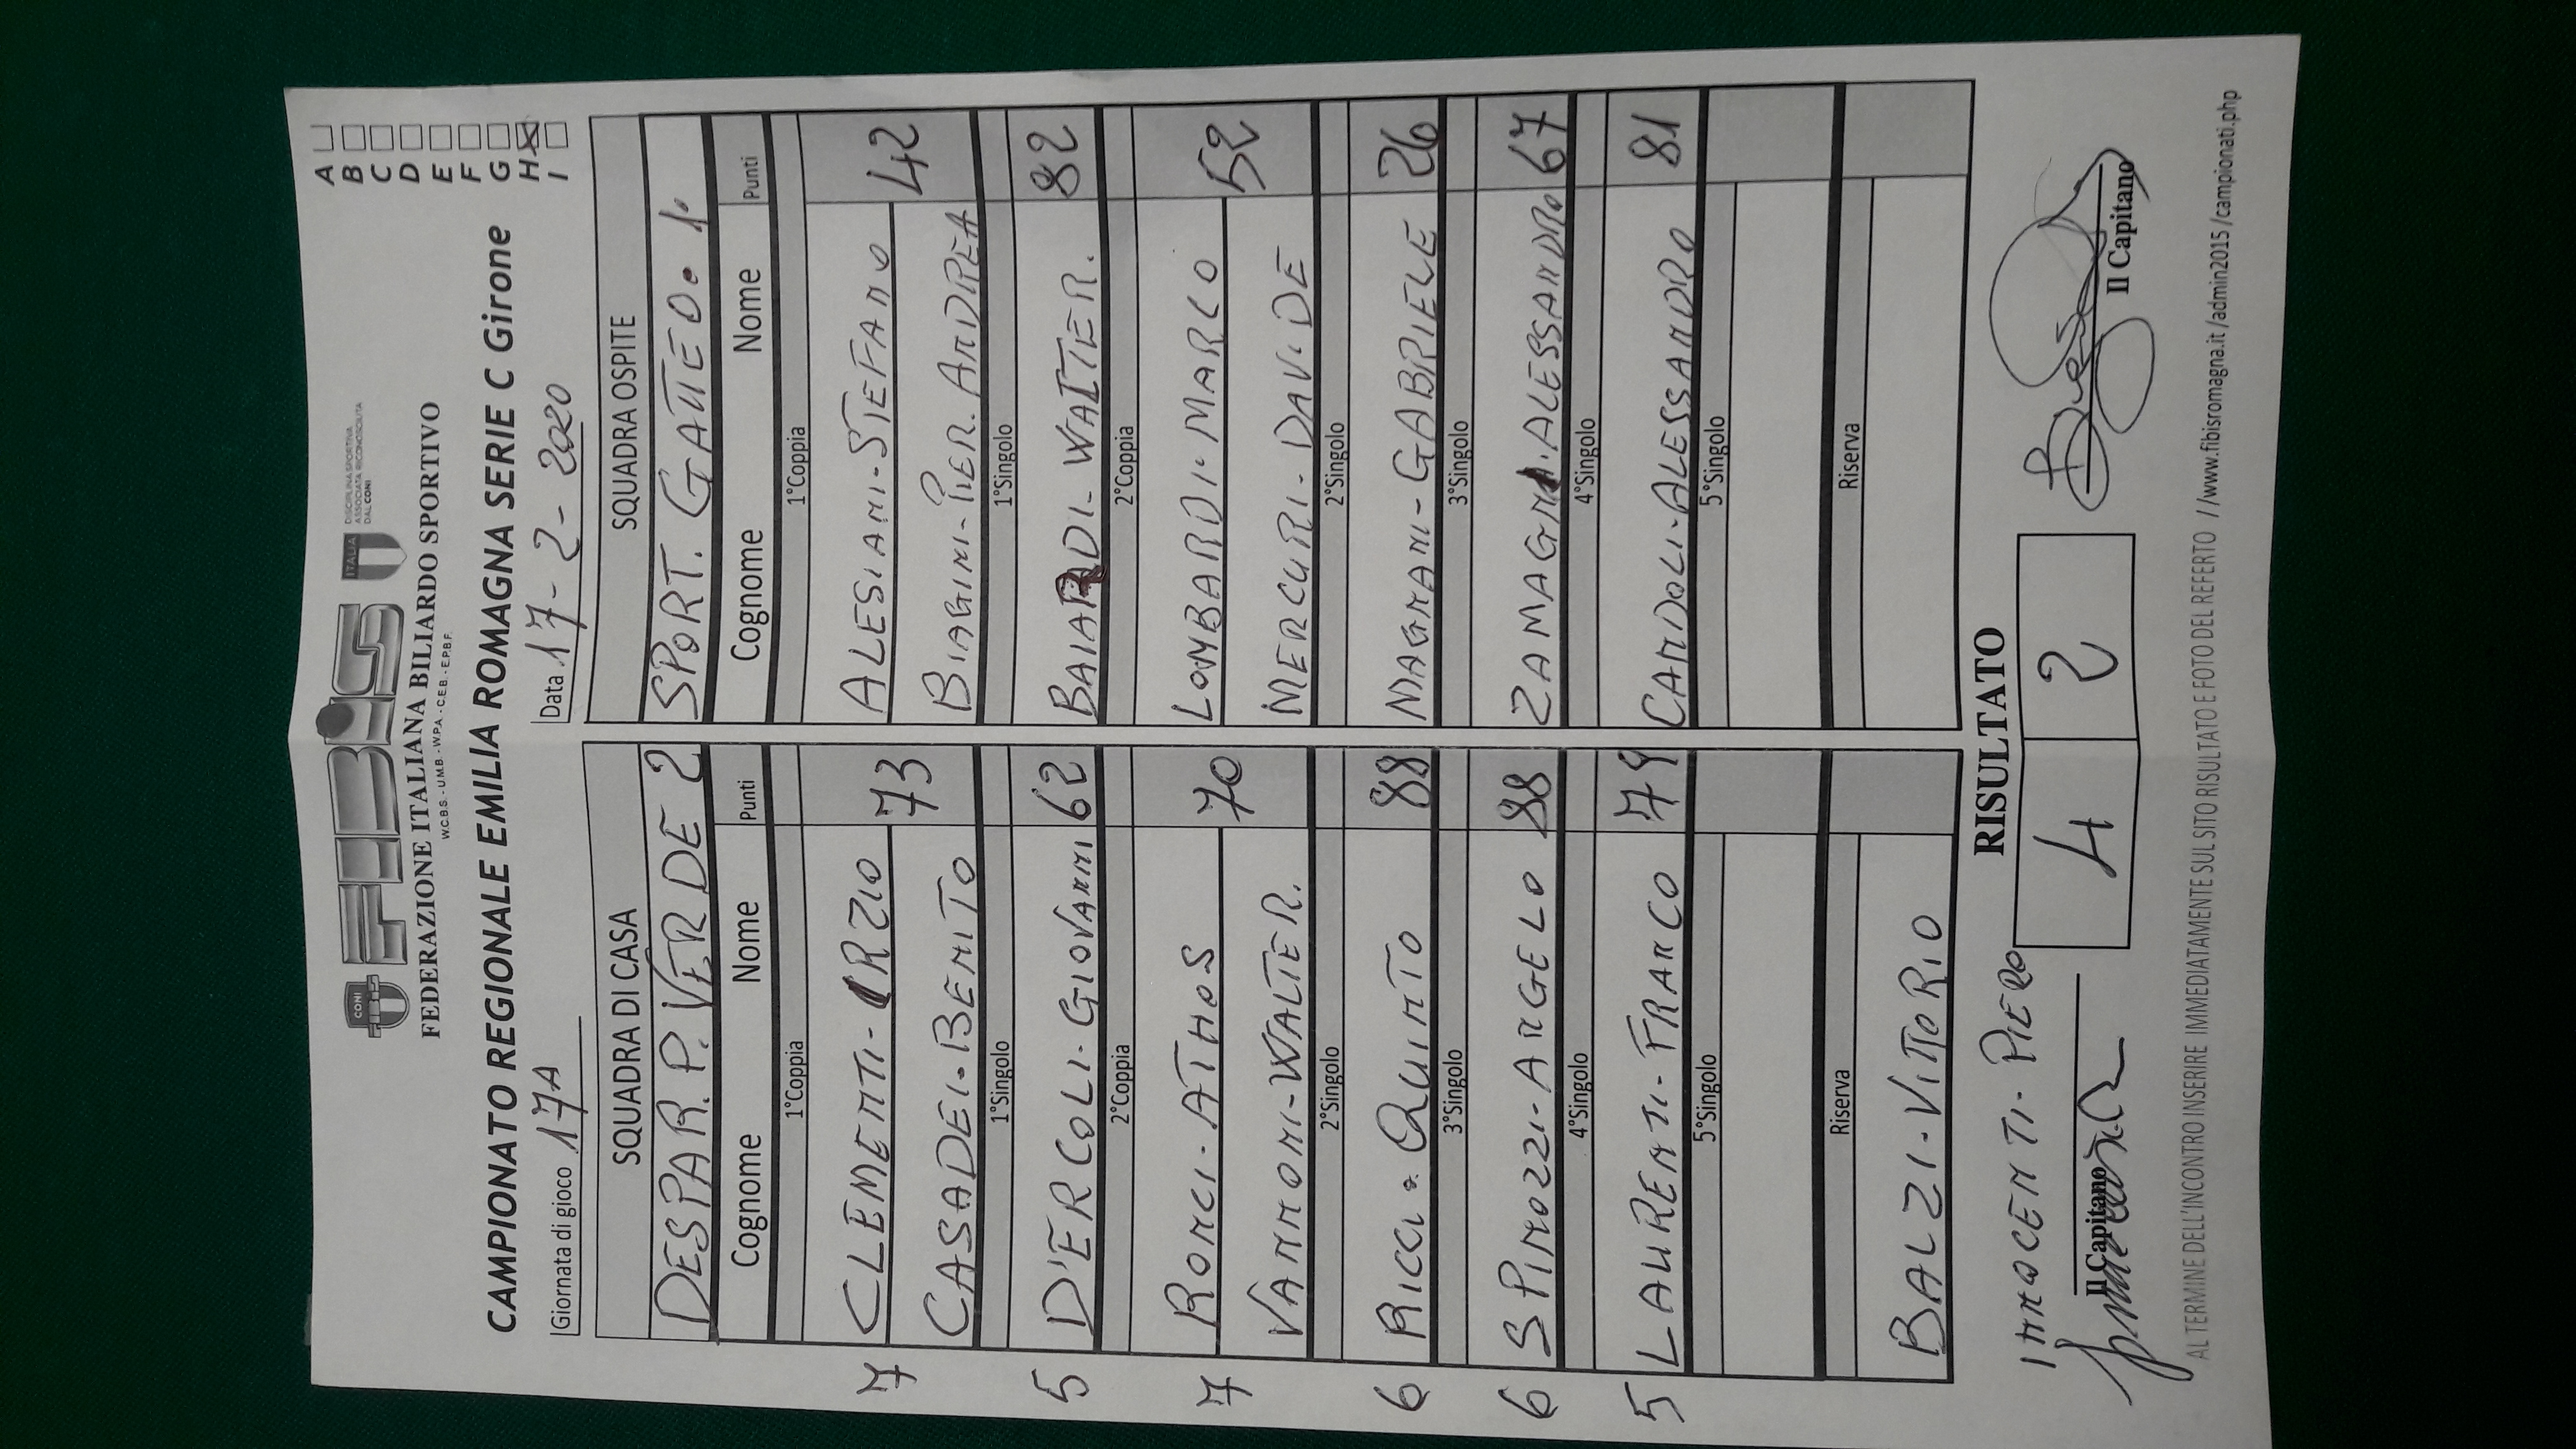 CONI
FIBiS
ITALIA
DISCIPLINA SPORTIVA
ASSOCIATA RICONOSCIUTA
DAL CONI
FEDERAZIONE ITALIANA BILIARDO SPORTIVO
W.C.B.S. - U.M.B. - W.P.A. - C.E.B. - E.P.B.F.
CAMPIONATO REGIONALE EMILIA ROMAGNA SERIE C Girone
A
B
C
D
E
F
G
H X
I
Giornata di gioco 17A
Data 17-2-2020
SQUADRA DI CASA
DESPAR. P. VERDE 2
Cognome Nome Punti
1°Coppia
7 CLEMENTI- RZIO 73
CASADEI.BENITO
1°Singolo
5 D'ERCOLI. GIOVANNI 62
2°Coppia
7 RONCI.ATHOS 70
VANNONI-WALTER.
2°Singolo
6 RICCI. QUINTO 88
3°Singolo
6 SPINOZZI-ANGELO 88
4°Singolo
5 LAURENTI-FRANCO 79
5°Singolo
Riserva
BALZI.VITTORIO
SQUADRA OSPITE
SPORT. GATTEO. 1.
Cognome Nome Punti
1°Coppia
ALESIANI-STEFANO 42
BIAGINI-PIER.ANDREA
1°Singolo
BAIARDI-WALTER. 82
2°Coppia
LOMBARDI.MARCO 52
MERCURI-DAVIDE
2°Singolo
MAGNANI-GABRIELE 26
3°Singolo
ZAMAGNI.ALESSANDRO 67
4°Singolo
CANDOLI-ALESSANDRO 81
5°Singolo
Riserva
RISULTATO
4 2
INNOCENTI-PIERO
Il Capitano
Il Capitano
AL TERMINE DELL'INCONTRO INSERIRE IMMEDIATAMENTE SUL SITO RISULTATO E FOTO DEL REFERTO //www.fibisromagna.it/admin2015/campionati.php